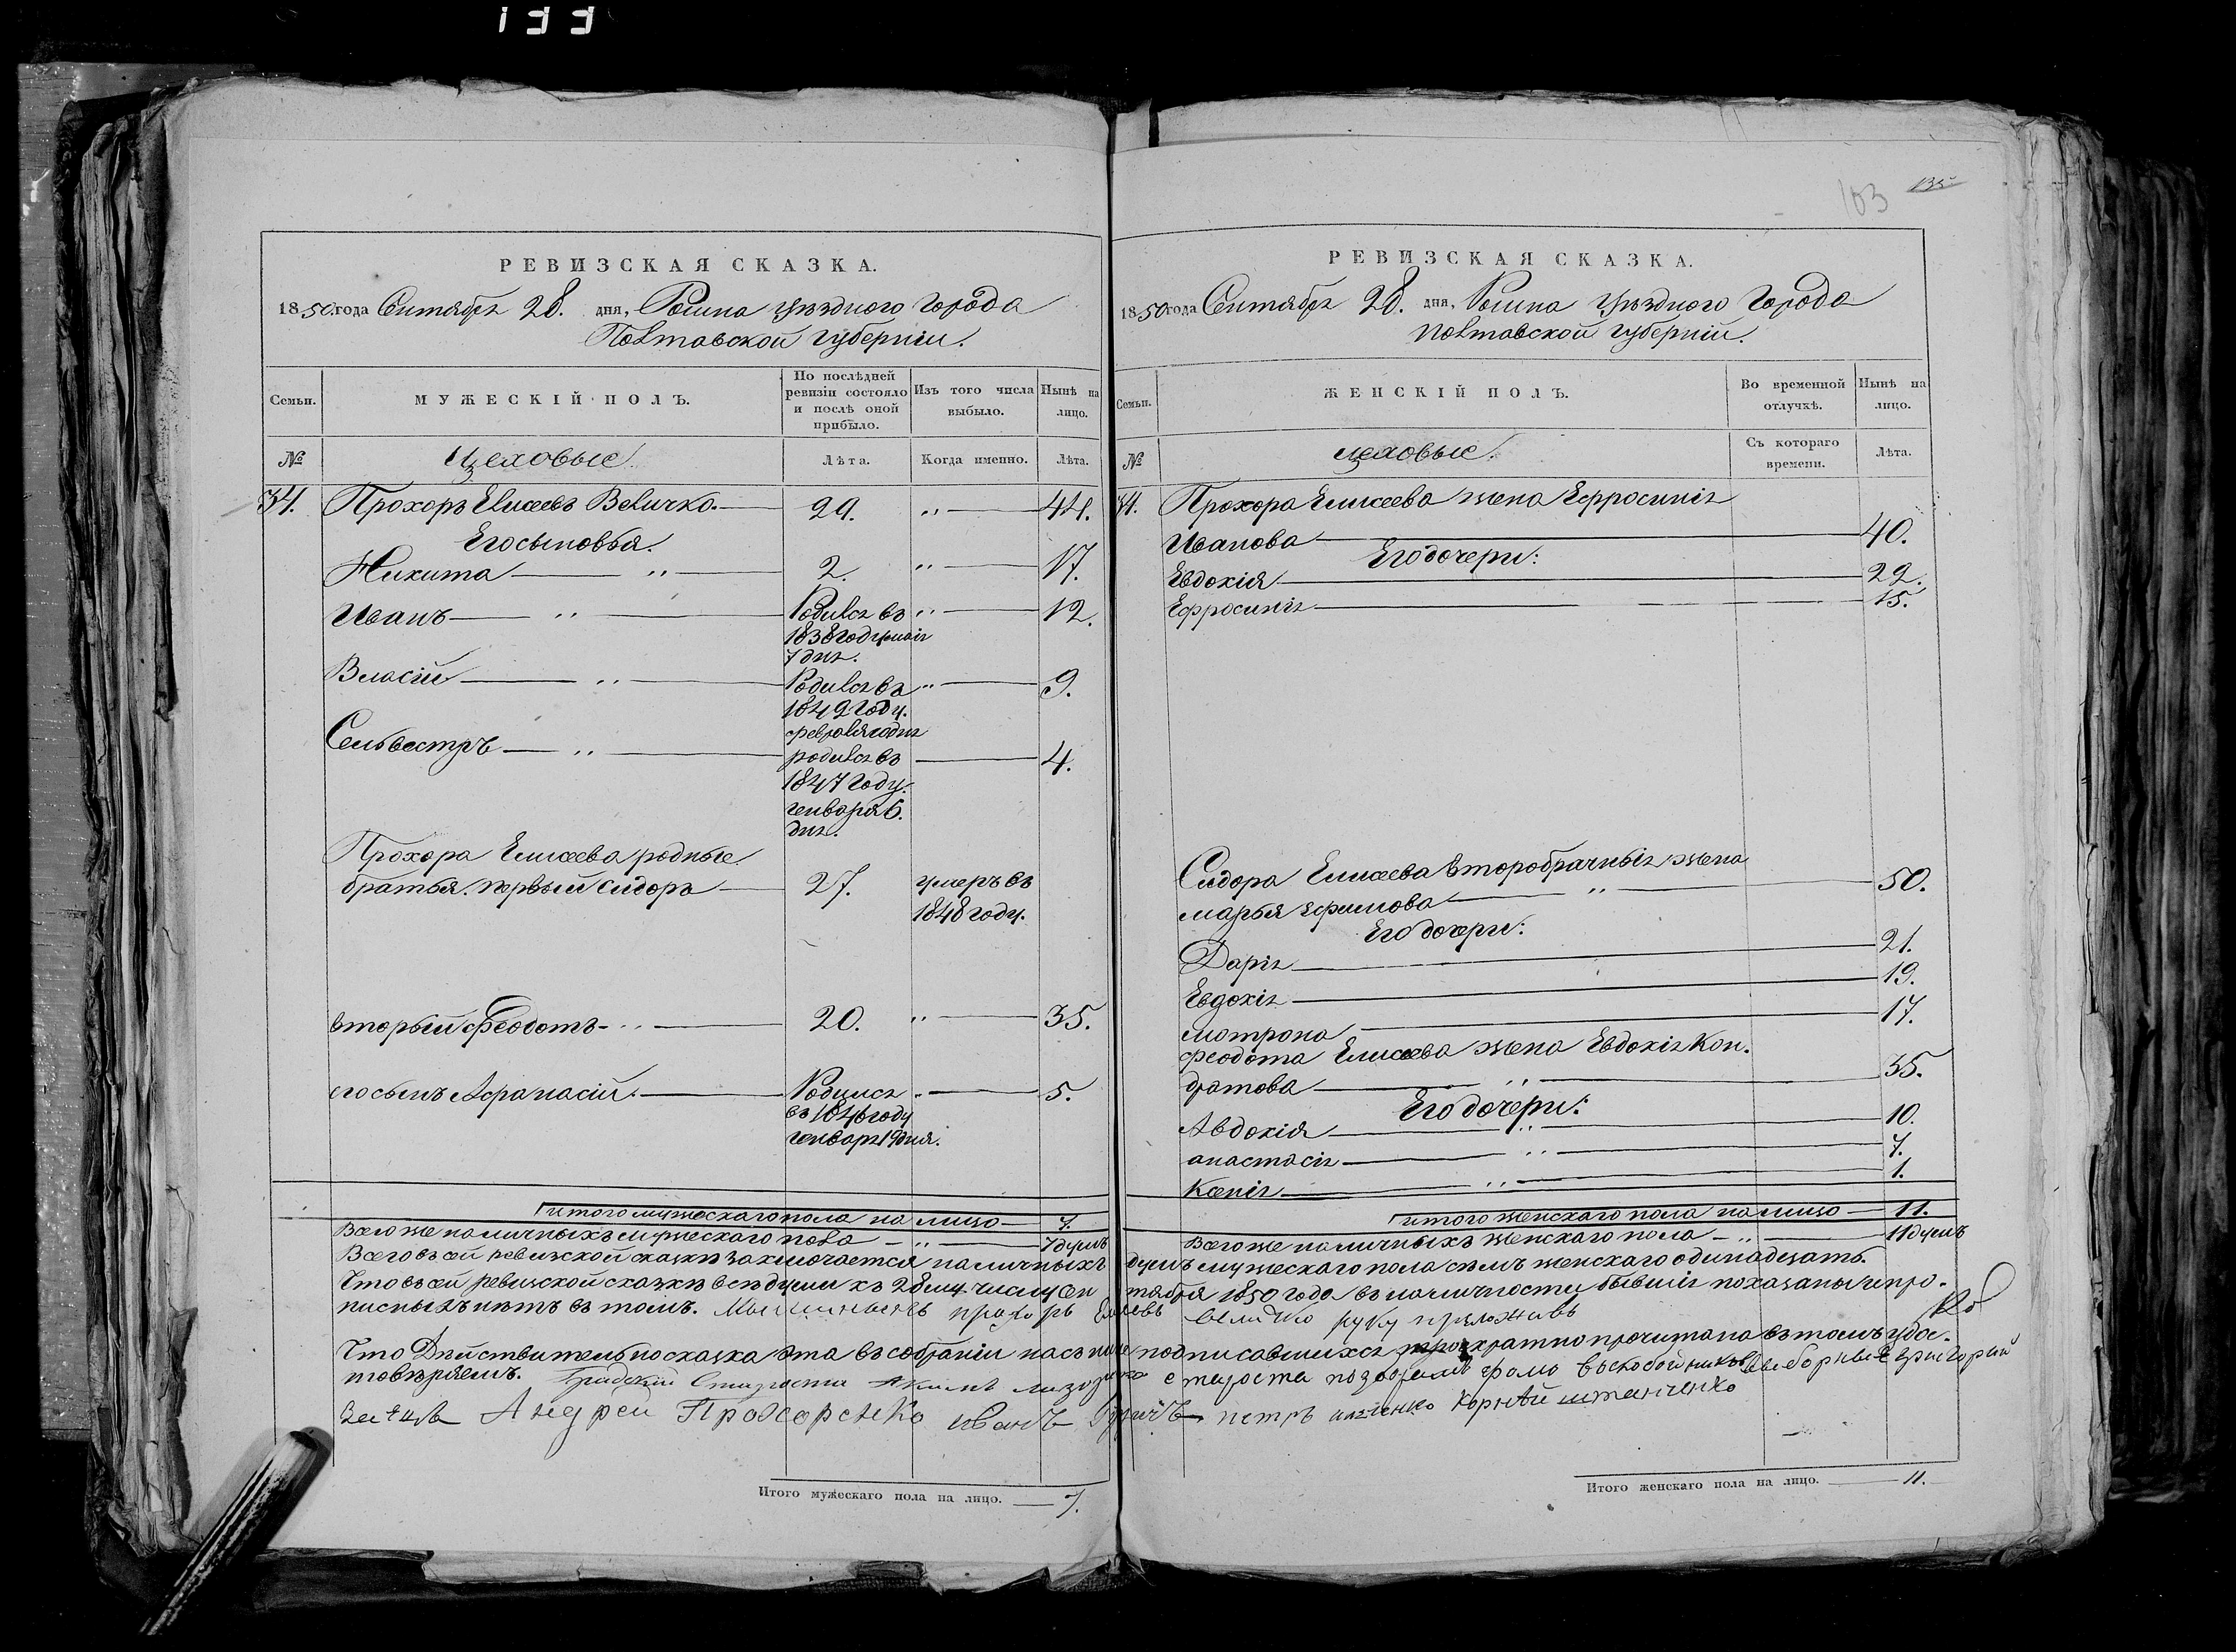 133
РЕВИЗСКАЯ СКАЗКА.
1850 года Сентября 28. дня, Ромна уѣзднаго города
Полтавской губерніи.
Семьи.
МУЖЕСКІЙ ПОЛЪ.
По послѣдней ревизіи состояло и послѣ оной прибыло.
Изъ того числа выбыло.
Нынѣ на лицо.
№
Цеховые
Лѣта.
Когда именно.
Лѣта.
34. Прохоръ Елисеевъ Величко. 29. " 44.
Его сыновья.
Никита " 2. " 17.
Иванъ " Родился въ " 12.
1838 году маія
7 дня.
Власій " Родился въ " 9.
1842 году.
февраля
Сельвестръ " родился въ 4.
1847 году.
генваря 6.
дня.
Прохора Елисеева родные
братья. первый Сидоръ 27. умеръ въ
1848 году.
вторый Феодотъ " 20. " 35.
его сынъ Афанасій. Родился " 5.
въ 1846 году
генваря 19 дня.
итого мужескаго пола на лицо 7.
Всего же наличныхъ мужескаго пола " 7 душъ
Итого мужескаго пола на лицо. 7.
103 135
РЕВИЗСКАЯ СКАЗКА.
1850 года Сентября 28. дня, Ромна уѣзднаго города
Полтавской губерніи.
Семьи.
ЖЕНСКІЙ ПОЛЪ.
Во временной отлучкѣ.
Нынѣ на лицо.
№
цеховые.
Съ котораго времени.
Лѣта.
34. Прохора Елисеева жена Ефросинія
Иванова 40.
Его дочери:
Евдокія 22.
Ефросинія 15.
Сидора Елисеева второбрачныя жена
марья Ефимова " 50.
Его дочери:
Дарія 21.
Евдокія 19.
мотрона 17.
Феодота Елисеева жена Евдокія Кон.
дратова " 35.
Его дочери:
Авдокія " 10.
анастасія " 7.
Ксенія " 1.
итого женскаго пола на лицо 11.
Всего же наличныхъ женскаго пола " 11 душъ
Всего въ сей ревизской сказкѣ заключается наличныхъ душъ мужескаго пола семъ женскаго одинадцать.
Что въ сей ревизской сказкѣ всѣ души къ 28му числу сентября 1850 года въ наличности бывшія показаны и про-
писныхъ нѣтъ въ томъ. прохоръ Елисеевъ величко руку приложивъ
Что Дѣйствительно сказка эта въ собраніи насъ ниже подписавшихся троекратно прочитана въ томъ удос-
товѣряемъ. Градскій Староста Акимъ староста Фома выборные григорый
Андрей Прохоренко иванъ петръ Корнѣй
Итого женскаго пола на лицо. 11.